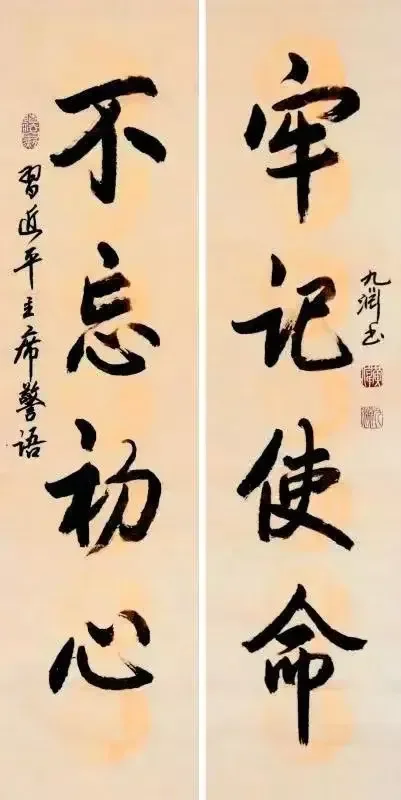 不忘初心
习近平主席警语
牢记使命
九润书